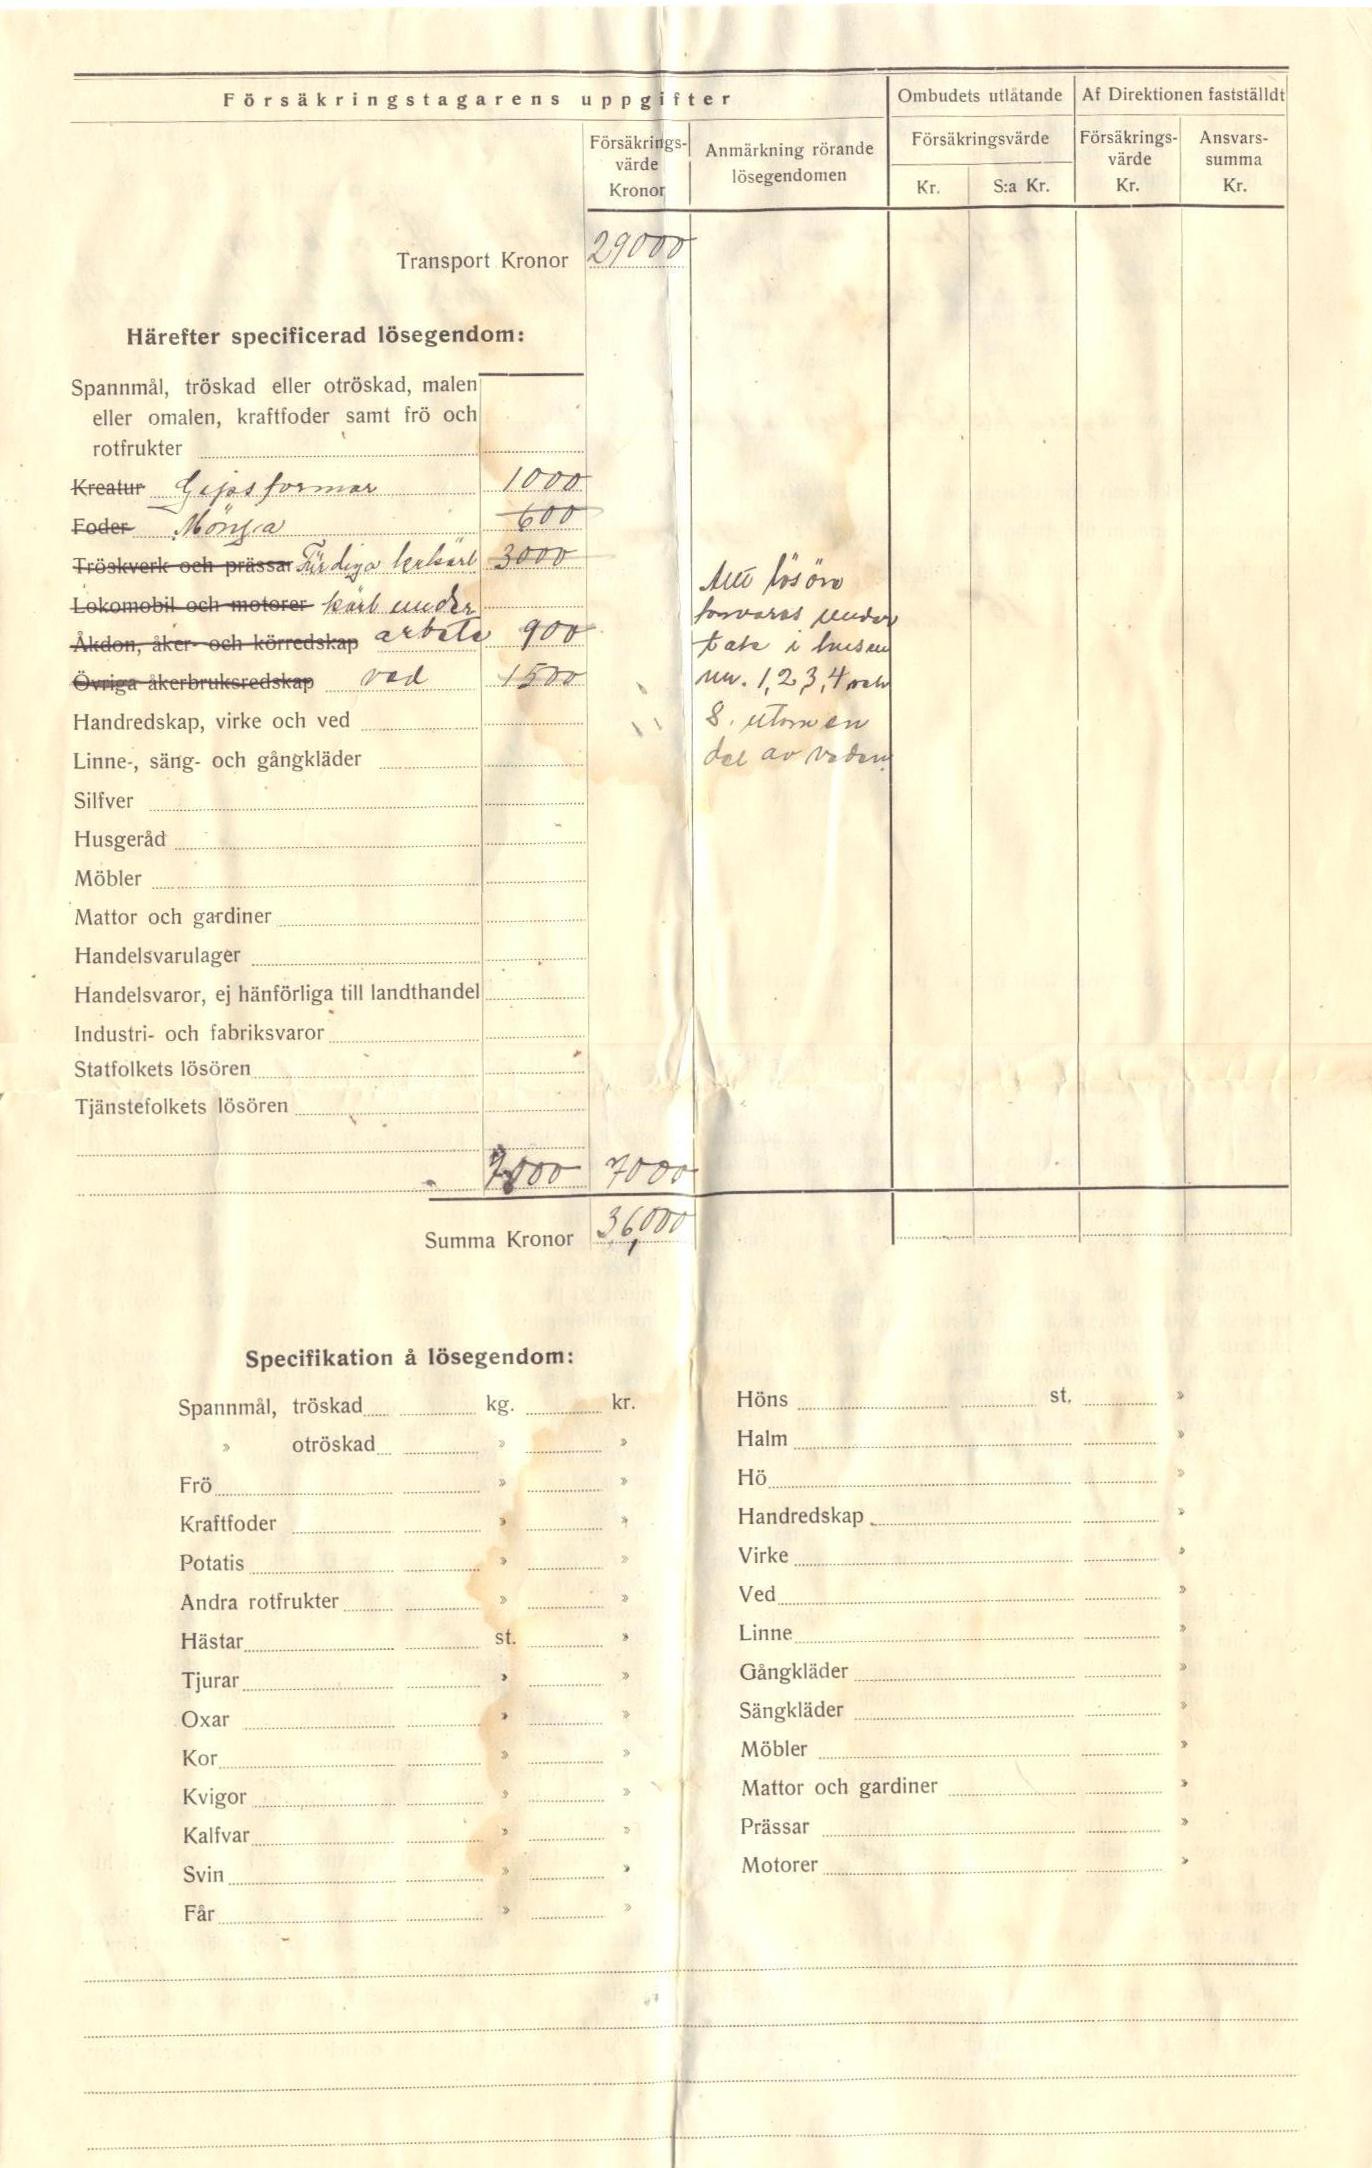 Försäkringstagarens uppgifter
Ombudets utlåtande
Af Direktionen fastställdt
Försäkrings-
värde
Kronor
Anmärkning rörande
lösegendomen
Försäkringsvärde
Kr.
S:a Kr.
Försäkrings-
värde
Kr.
Ansvars-
summa
Kr.
Transport Kronor 29000
Härefter specificerad lösegendom:
Spannmål, tröskad eller otröskad, malen
eller omalen, kraftfoder samt frö och
rotfrukter
Kreatur Gipsformar 1000
Foder Mönja 600
Tröskverk och prässar Färdiga 3000
Lokomobil och motorer kärl under
Åkdon, åker- och körredskap arbete 900
Övriga åkerbruksredskap ved 1500
Handredskap, virke och ved
Linne-, säng- och gångkläder
Silfver
Husgeråd
Möbler
Mattor och gardiner
Handelsvarulager
Handelsvaror, ej hänförliga till landthandel
Industri- och fabriksvaror
Statfolkets lösören
Tjänstefolkets lösören
lösöre
förvaras under
tak i husen
nr. 1, 2, 3, 4 och
8. utom en
del av veden.
7000 7000
Summa Kronor 36,000
Specifikation å lösegendom:
Spannmål, tröskad kg. kr.
» otröskad » »
Frö » »
Kraftfoder » »
Potatis » »
Andra rotfrukter » »
Hästar st. »
Tjurar » »
Oxar » »
Kor » »
Kvigor » »
Kalfvar » »
Svin » »
Får » »
Höns st. »
Halm »
Hö »
Handredskap »
Virke »
Ved »
Linne »
Gångkläder »
Sängkläder »
Möbler »
Mattor och gardiner »
Prässar »
Motorer »